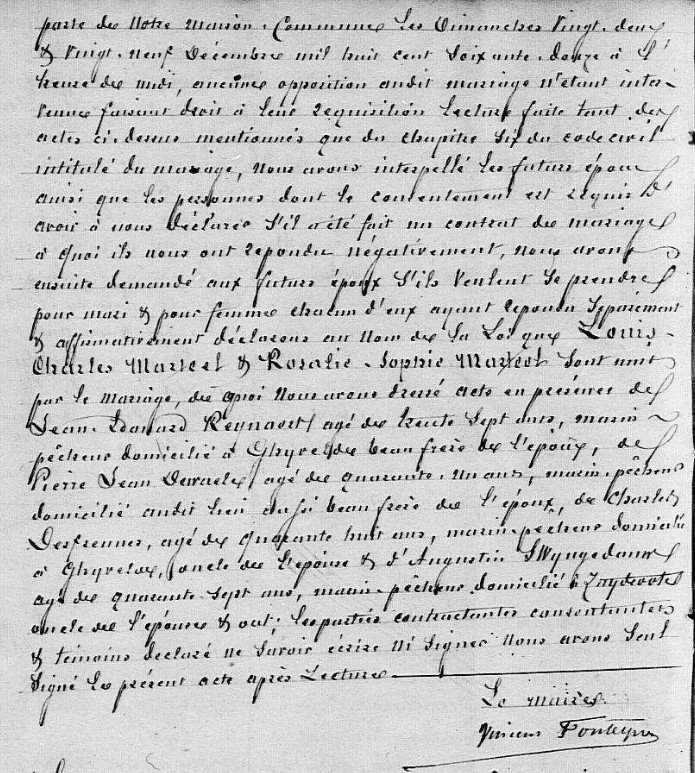 porte de Notre Maison-Commune les Dimanches Vingt-deux
& Vingt-neuf Décembre mil huit cent Soixante-douze à l'
heure de midi, aucune opposition audit mariage n'étant inter-
venue faisant droit à leur requisition lecture faite tant des
actes ci-dessus mentionnés que du chapitre Six du code civil
intitulé du mariage, Nous avons interpellé les futurs époux
ainsi que les personnes dont le consentement est requis d'
avoir à nous déclarer S'il a été fait un contrat de mariage
à quoi ils nous ont repondu négativement, nous avons
ensuite demandé aux futurs époux S'ils veulent Se prendre
pour mari & pour femme chacun d'eux ayant repondu Séparément
& affirmativement déclarons au Nom de la Loi que Louis-
Charles Marteel & Rosalie-Sophie Marteel Sont unis
par le mariage, de quoi Nous avons dressé acte en présence de
Jean Léonard Reynaert agé de trente Sept ans, marin-
pêcheur domicilié à Ghyvelde beau frère de l'époux, de
Pierre Jean agé de quarante-un ans, marin-pêcheur
domicilié audit lieu aussi beau frère de l'époux, de Charles
agé de quarante huit ans, marin-pêcheur domicilié
à Ghyvelde, oncle de l'épouse & d'Augustin Swyngedauw
agé de quarante-Sept ans, marin-pêcheur domicilié à Zuydcoote
oncle de l'épouse & ont, les parties contractantes consentantes
& témoins declaré ne Savoir écrire ni Signer Nous avons Seul
Signé le présent acte après Lecture
Le Maire
Fonteyne